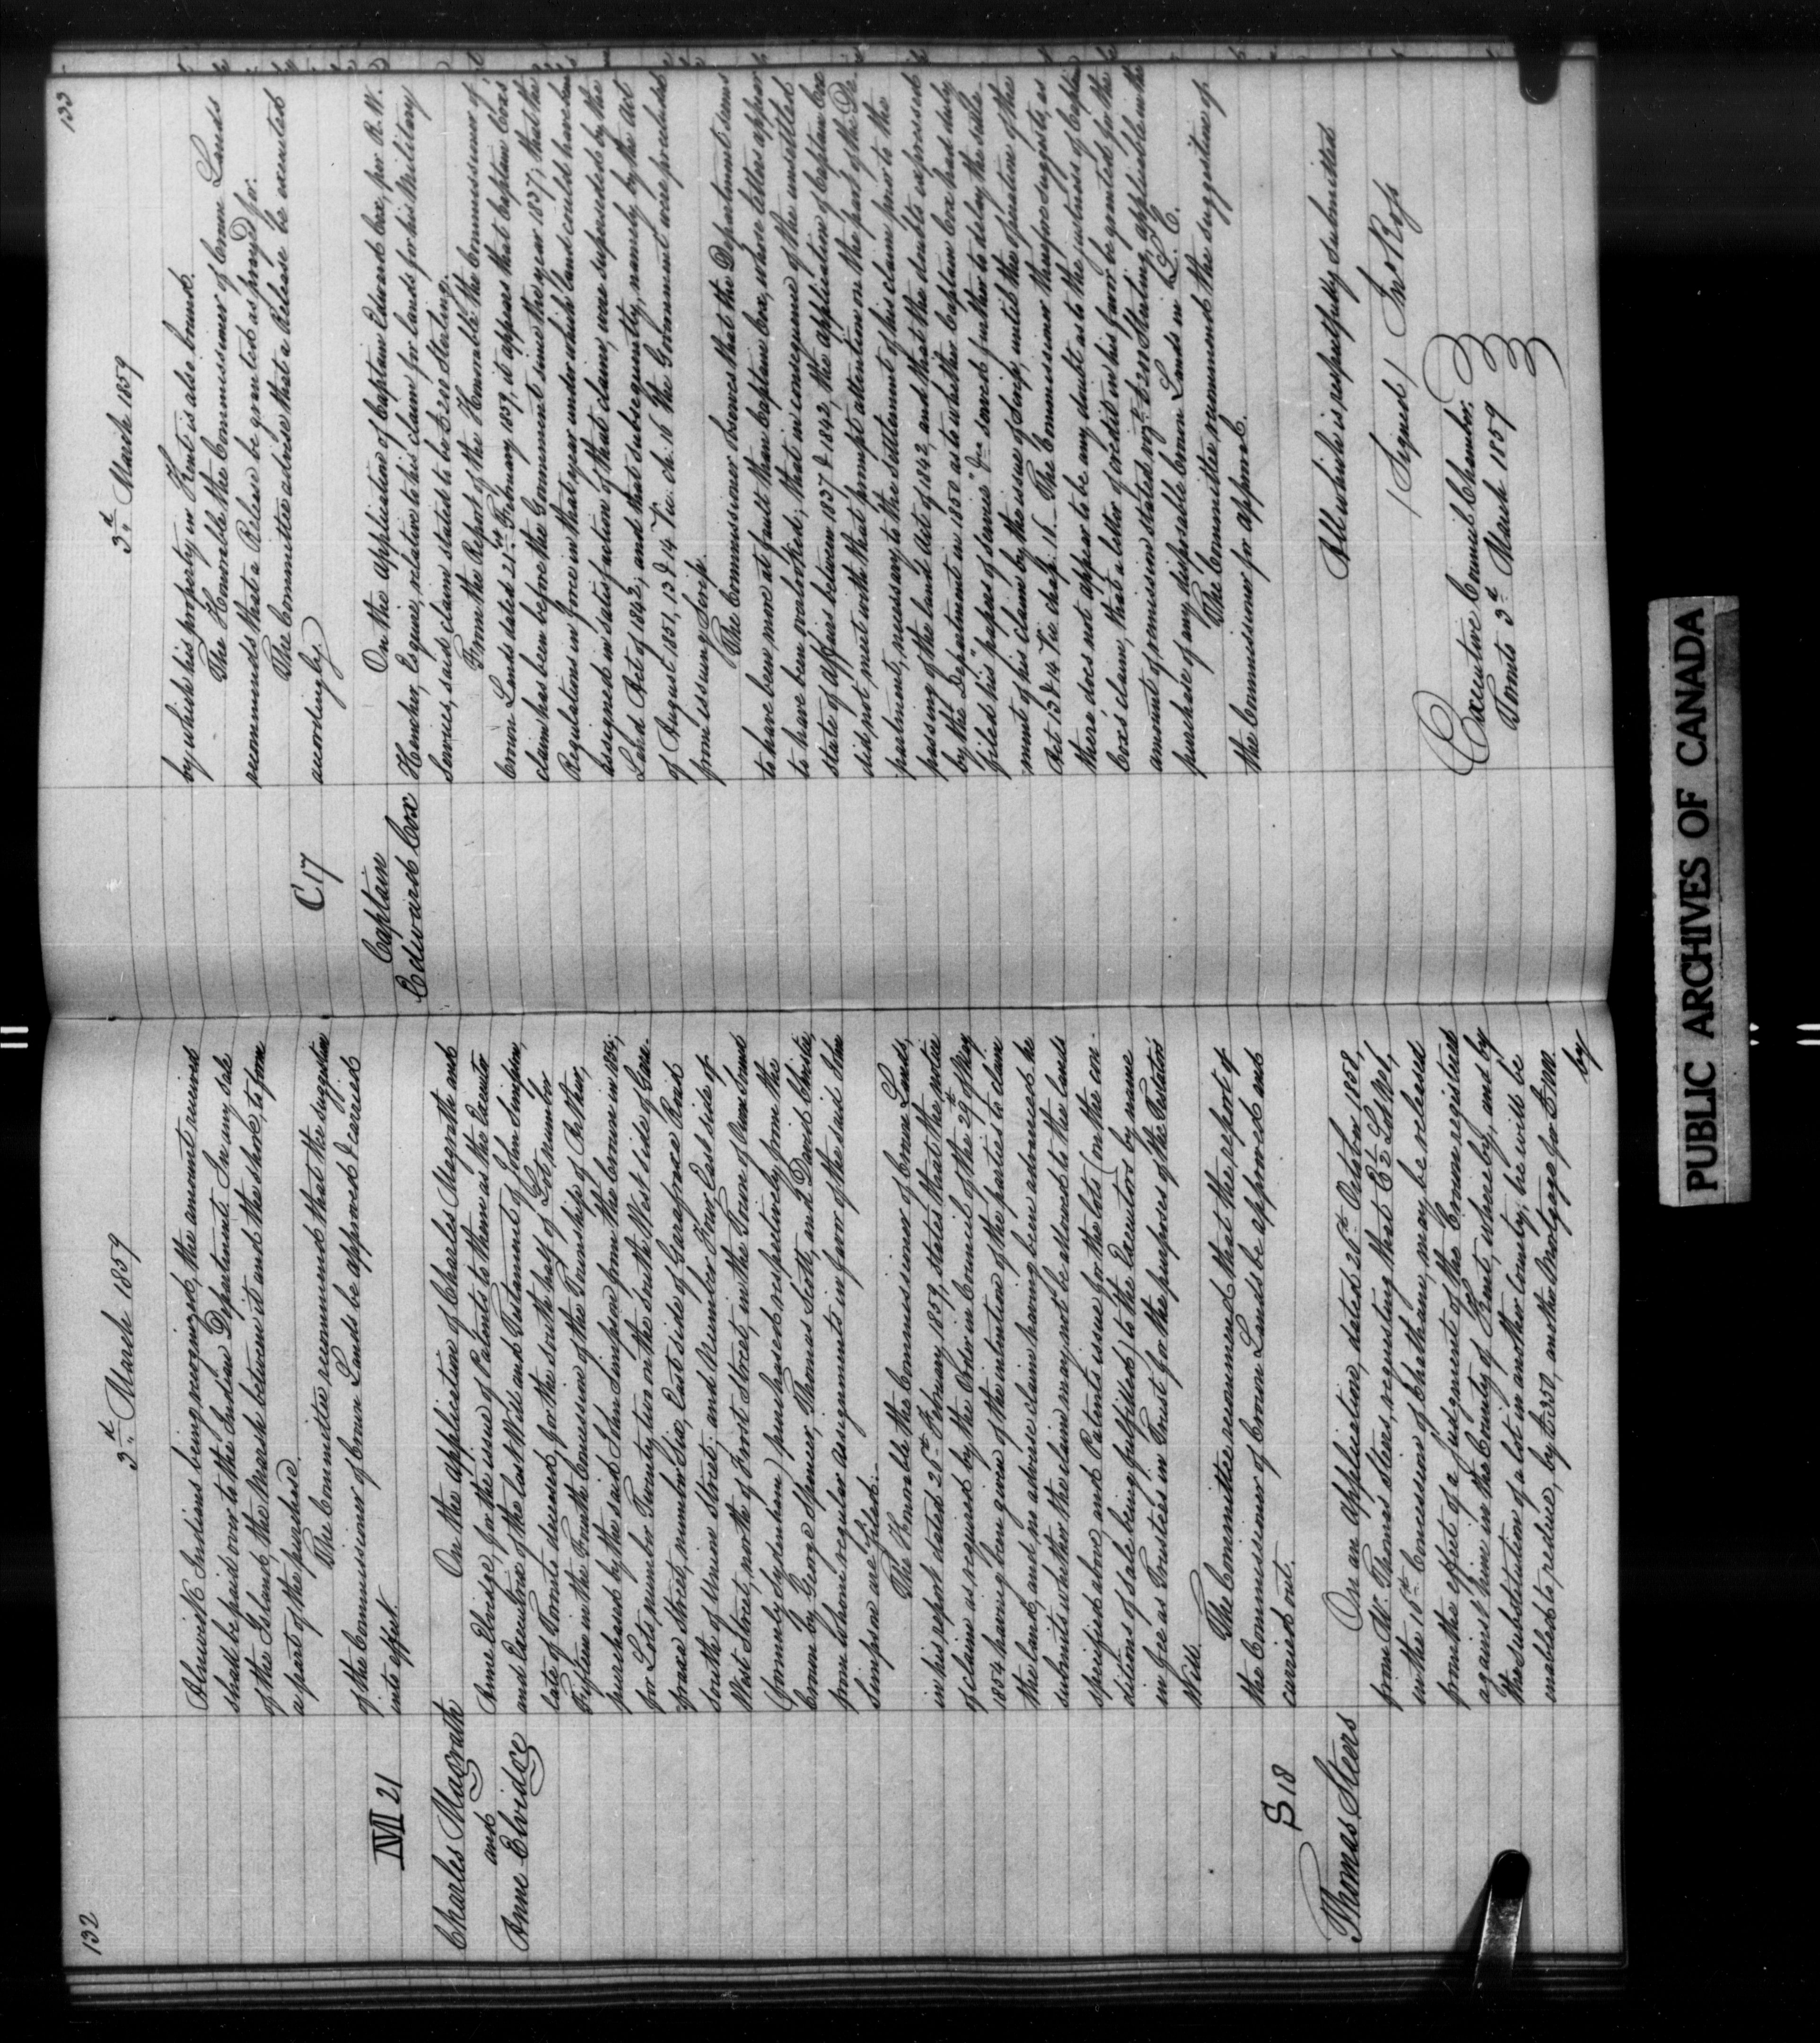 132
3d. March 1859
Alnwick Indians being recognized, the amount received
shall be paid over to the Indian Department. In any sale
of the Island, the Marsh between it and the shore, to form
a part of the purchase.
The Committee recommend that the suggestion
of the Commissioner of Crown Lands be approved & carried
into effect.
M 21
Charles Magrath
and
Anne Elvidge
On the application of Charles Magrath and
Anne Elvidge, for the issue of Patents to them as the Executor
and Executrix of the last Will and Testament of John Simpson,
late of Toronto deceased, for the south half of Lot, number
Fifteen in the Fourth Concession of the Township of Arthur,
purchased by the said John Simpson from the Crown in 1854;
for Lots number Twenty two on the South West side of Gara-
fraxa Street, number Six, East side of Garafraxa Road
South of Union Street and Number Four East side of
West Street, north of Frost Street, in the Town of Owen Sound
(formerly Sydenham) purchased respectively from the
Crown by George Spencer, Thomas Scott, and David Christie,
from whom regular assignments in favor of the said John
Simpson are filed.
The Honorable the Commissioner of Crown Lands,
in his report dated 25th February 1859, states that the notice
of claim as required by the Order in Council of the 29th May
1854 having been given of the intention of the parties to claim
the land, and no adverse claim having been advanced he
submits whether the claim may not be allowed to the lands
specified above and Patents issue for the lots (on the con-
ditions of Sale being fulfilled) to the Executors by name
in fee as Trustees in Trust for the purposes of the Testators
Will.
The Committee recommend that the report of
the Commissioner of Crown Lands be approved and
carried out.
S 18
Thomas Steers
On an application, dated 26th October 1858,
from Mr. Thomas Steers, requesting that E½ Lot No 1,
in the 16th Concession of Chatham, may be released
from the effect of a Judgment of the Crown registered
against him in the County of Kent, whereby, and by
the substitution of a lot in another County, he will be
enabled to reduce, by £350, another Mortgage for £700.
by
133
3d. March 1859
by which his property in Kent is also bound.
The Honorable the Commissioner of Crown Lands
recommends that a Release be granted as prayed for.
The Committee advise that a Release be executed
accordingly.
C 17
Captain
Edward Cox
On the application of Captain Edward Cox, per R. W.
Hencher, Esquire, relative to his claim for lands for his Military
Services, said claim stated to be £200 Sterling.
From the Report of the Honorable the Commissioner of
Crown Lands dated 21st February 1859, it appears that Captain Cox's
claim has been before the Government since the year 1837; that the
Regulations in force in that year under which land could have been
assigned in satisfaction of that claim, were superseded by the
Land Act of 1842, and that subsequently, namely by the Act
of August 1851, 13 & 14 Vic. ch: 16 the Government were precluded
from issuing Scrip.
The Commissioner observes that the Department seems
to have been more at fault than Captain Cox, whose letters appear
to have been overlooked; that in consequence of the unsettled
state of affairs between 1837 & 1842, the application of Captain Cox
did not meet with that prompt attention on the part of the De-
partment, necessary to the settlement of his claim prior to the
passing of the Land Act of 1842, and that the doubts expressed
by the Department in 1850 as to whether Captain Cox had duly
filed his "papers of Service" &ca served further to delay the settle-
ment of his claim by the issue of Scrip, until the operation of the
Act 13 & 14 Vic chap: 16. The Commissioner therefore suggests, as
there does not appear to be any doubt as to the justness of Captain
Cox's claim, that a letter of credit in his favor be granted for the
amount of remission stated vizt: £200 Sterling, applicable in the
purchase of any disposable Crown Lands in L. C.
The Committee recommend the suggestion of
the Commissioner for approval.
All which is respectfully submitted
(Signed) Jno Ross
Executive Council Chamber,
Toronto 3d March 1859
PUBLIC ARCHIVES OF CANADA